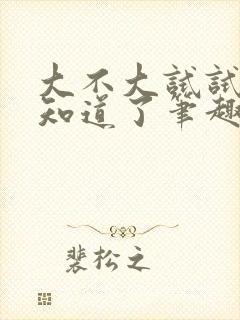 大不大試試
知道了筆趣
裴松之